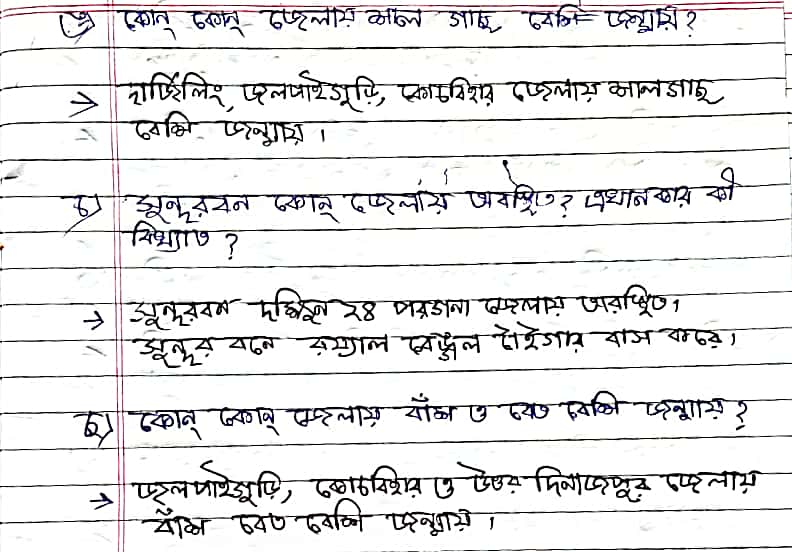 ঙ) কোন্ কোন্ জেলায় শাল গাছ বেশি জন্মায়?
→ দার্জিলিং, জলপাইগুড়ি, কোচবিহার জেলায় শালগাছ
বেশি জন্মায়।
চ) সুন্দরবন কোন্ জেলায় অবস্থিত? এখানকার কী
বিখ্যাত?
→ সুন্দরবন দক্ষিণ ২৪ পরগানা জেলায় অবস্থিত।
সুন্দর বনে রয়্যাল বেঙ্গল টাইগার বাস করে।
ছ) কোন্ কোন্ জেলায় বাঁশ ও বেত বেশি জন্মায়?
→ জলপাইগুড়ি, কোচবিহার ও উত্তর দিনাজপুর জেলায়
বাঁশ বেত বেশি জন্মায়।